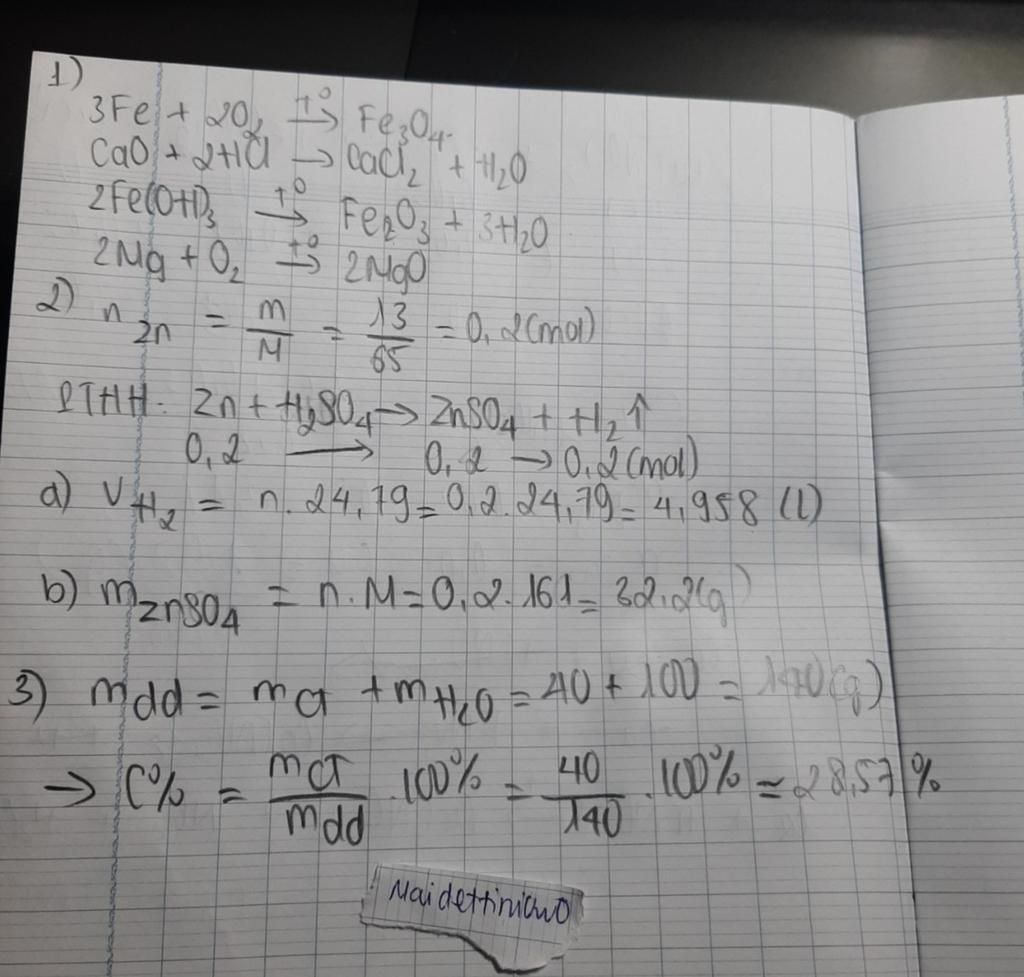 1)
3Fe + 2O₂ t⁰→ Fe₃O₄.
CaO + 2HCl → CaCl₂ + H₂O
2Fe(OH)₃ t⁰→ Fe₂O₃ + 3H₂O
2Mg + O₂ t⁰→ 2MgO
2) n Zn = m/M = 13/65 = 0,2(mol)
PTHH: Zn + H₂SO₄ → ZnSO₄ + H₂↑
0,2 → 0,2 → 0,2(mol)
a) V H₂ = n.24,79 = 0,2.24,79 = 4,958 (l)
b) m ZnSO₄ = n.M = 0,2.161 = 32,2(g)
3) mdd = mct + mH₂O = 40 + 100 = 140(g)
→ C% = mct/mdd .100% = 40/140 .100% = 28,57%